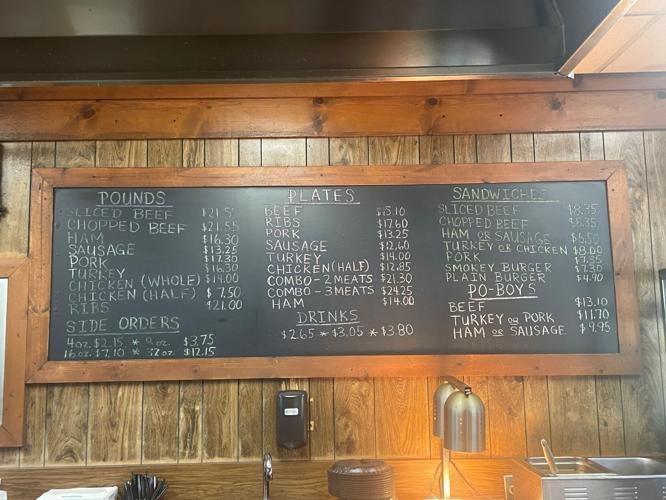 POUNDS
SLICED BEEF $21.55
CHOPPED BEEF $21.55
HAM $16.30
SAUSAGE $13.25
PORK $17.30
TURKEY $16.30
CHICKEN (WHOLE) $14.00
CHICKEN (HALF) $7.50
RIBS $21.00
SIDE ORDERS
4oz. $2.15 * 8oz. $3.75
16oz. $7.10 * 32oz. $12.15
PLATES
BEEF $15.10
RIBS $17.60
PORK $13.25
SAUSAGE $12.60
TURKEY $14.00
CHICKEN (HALF) $12.85
COMBO - 2 MEATS $21.30
COMBO - 3 MEATS $24.25
HAM $14.00
DRINKS
$2.65 * $3.05 * $3.80
SANDWICHES
SLICED BEEF $8.35
CHOPPED BEEF $8.35
HAM OR SAUSAGE $6.50
TURKEY OR CHICKEN $8.00
PORK $7.35
SMOKEY BURGER $7.30
PLAIN BURGER $4.90
PO-BOYS
BEEF $13.10
TURKEY OR PORK $11.70
HAM OR SAUSAGE $9.95